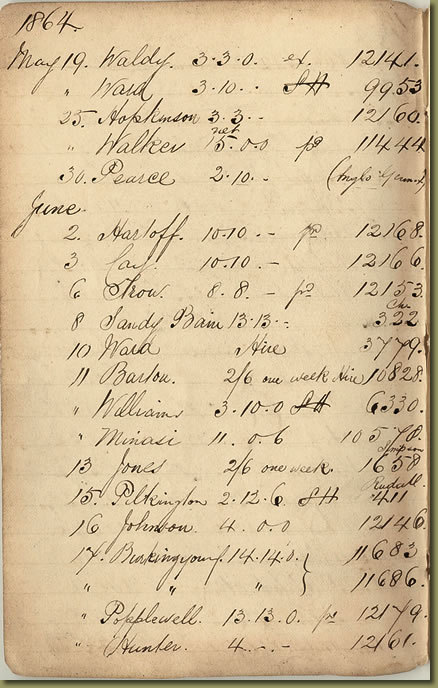 1864.
May 19. Waldy. 3.3.0. ex. 12141.
" Ward 3.10.. SH 9953
25. Hopkinson 3.3.- 12160.
" Walker net 15.0.0 pd 11444
30. Pearce 2.10.-
June.
2. Hartoff. 10.10.- pd 12168.
3 Cay. 10.10.- 12166.
6 Trow. 8.8.- pd 12153.
8 Sandy Bain 13.13.- 322
10 Ward Hire 3779.
11 Barton. 2/6 one week Hire 10828.
" Williams 3.10.0 SH 6330.
" Minasi 11.0.6 10578.
Simpson
13 Jones 2/6 one week. 1658
Rudall
15. Pilkington 2.12.6. SH 411
16 Johnson 4.0.0 12146.
17. 14.14.0. 11683
" " " 11686.
" Popplewell. 13.13.0. pd 12179.
" Hunter. 4.-.- 12161.